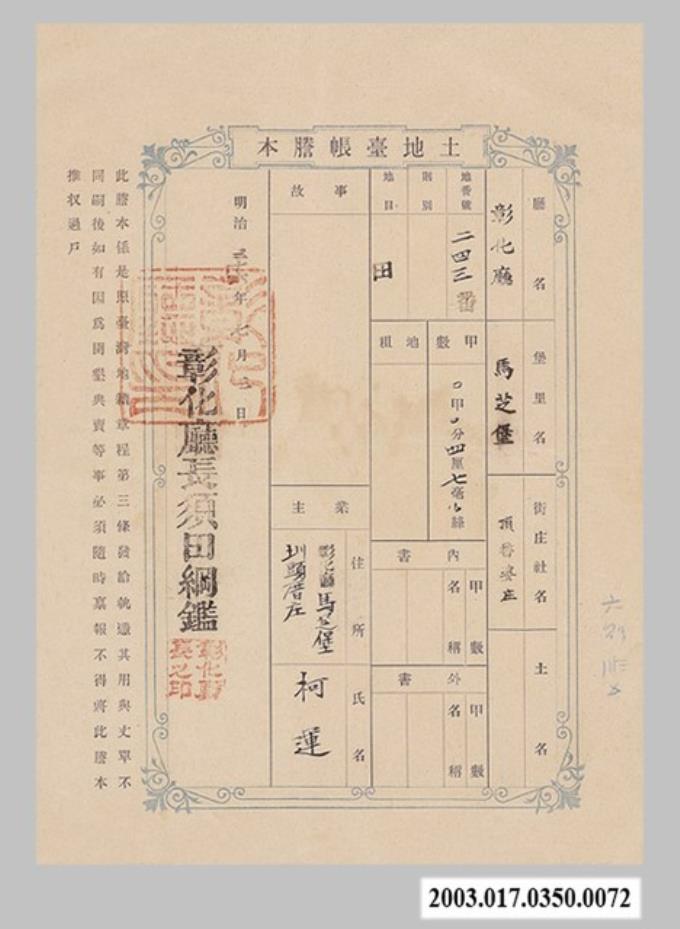 土地臺帳謄本
廳名
彰化廳
堡里名
馬芝堡
街庄社名
頂番婆庄
土名
地番號
二四三番
則別
地目
田
甲數
〇甲〇分四厘七毫〇絲
地租
內書
甲數
名稱
外書
甲數
名稱
事故
業主
住所
彰化廳馬芝堡
圳頭厝庄
氏名
柯運
明治三十六年七月 日
彰化廳長須田綱鑑
彰化廳長之印
此謄本係是照臺灣地籍章程第三條發給執憑其用與丈單不
同嗣後如有因為開墾典賣等事必須隨時稟報不得將此謄本
推收過戶
2003.017.0350.0072